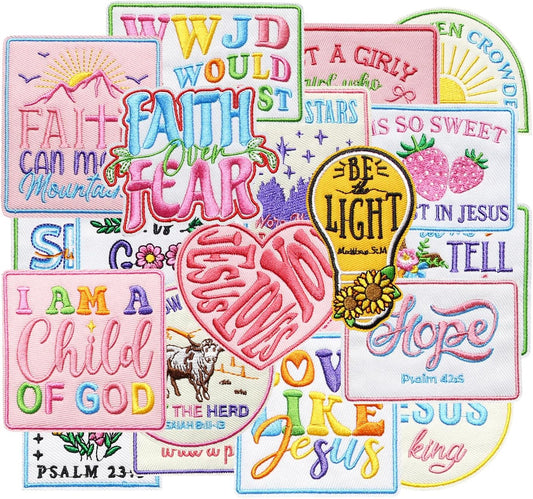 WWJD
WOULD
ST
T A GIRLY
EN CROWDE
FAITH
CAN M
Mountai
FAITH
Over
FEAR
STARS
IS SO SWEET
ST IN JESUS
BE
the
LIGHT
Matthew 5:14
S
G
TELL
JESUS LOVES YOU
I AM A
Child
OF GOD
OW
THE HERD
ISAIAH 8:11-13
Hope
Psalm 42:5
LOVE
LIKE
Jesus
ESUS
king
PSALM 23: